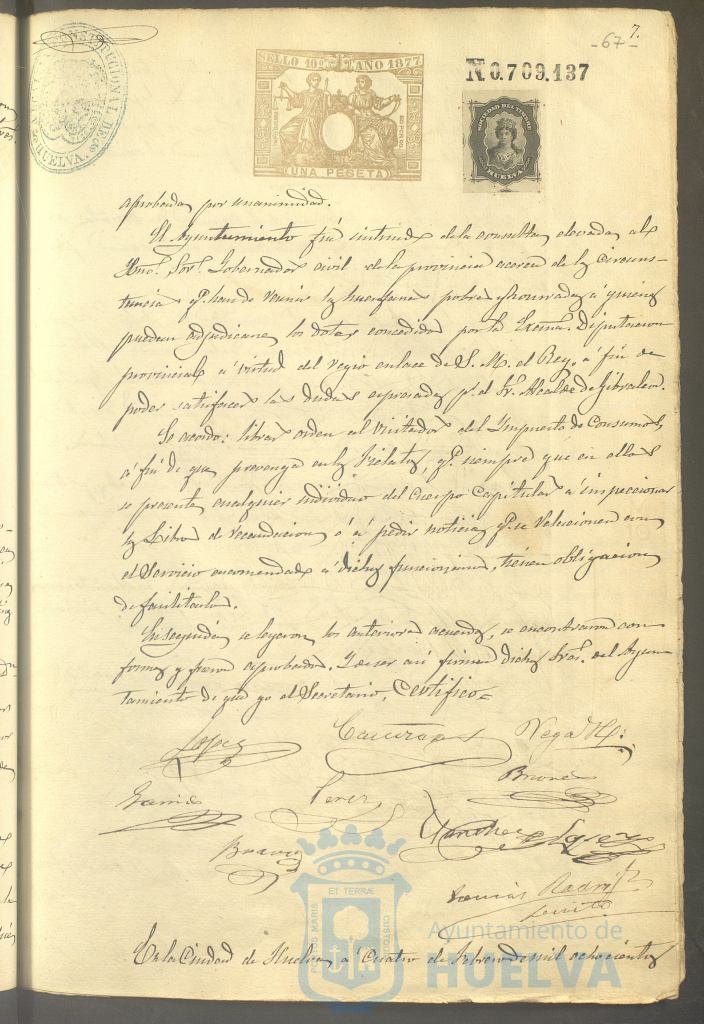 -67-
7.
CONSTITUCIONAL DE
HUELVA.
SELLO 10º AÑO 1877
(UNA PESETA)
N 0.709.137
SOCIEDAD DEL TIMBRE
HUELVA
aprobada por unanimidad.
El Ayuntamiento fué de la consulta elevada al
Ilmo. Sor. Gobernador civil de la provincia acerca de las circuns-
tancias q.e han de reunir las huerfanas pobres y honradas á quienes
puedan adjudicarse los dotes concedidos por la Exma. Diputacion
provincial á virtud del regio enlace de S. M. el Rey, á fin de
poder satisfacer las dudas expresadas p.r el Sr. Alcalde de Gibraleon.
Se acordó: librar orden al Visitador del Impuesto de Consumos,
á fin de que prevenga en los Fielatos, q.e siempre que en ellos
se presente cualquier individuo del Cuerpo Capitular á inspeccionar
los Libros de recaudacion ó á pedir noticias q.e se relacionen con
el Servicio encomendado á dichos funcionarios, tienen obligacion
de facilitarlos.
Enseguida se leyeron los anteriores acuerdos, se encontraron con
formes y fueron aprobados. Y de ser asi firman dichos Sres. del Ayun
tamiento de que yo el Secretario, Certifico=
Lopez
Vega
Garcia
Perez
Bravo
Sanchez
Lopez
Tomás
ET TERRAE
PORTUS MARIS
CUSTODIA
Ayuntamiento de
HUELVA
En la Ciudad de Huelva á Cuatro de Febrero de mil ochocientos